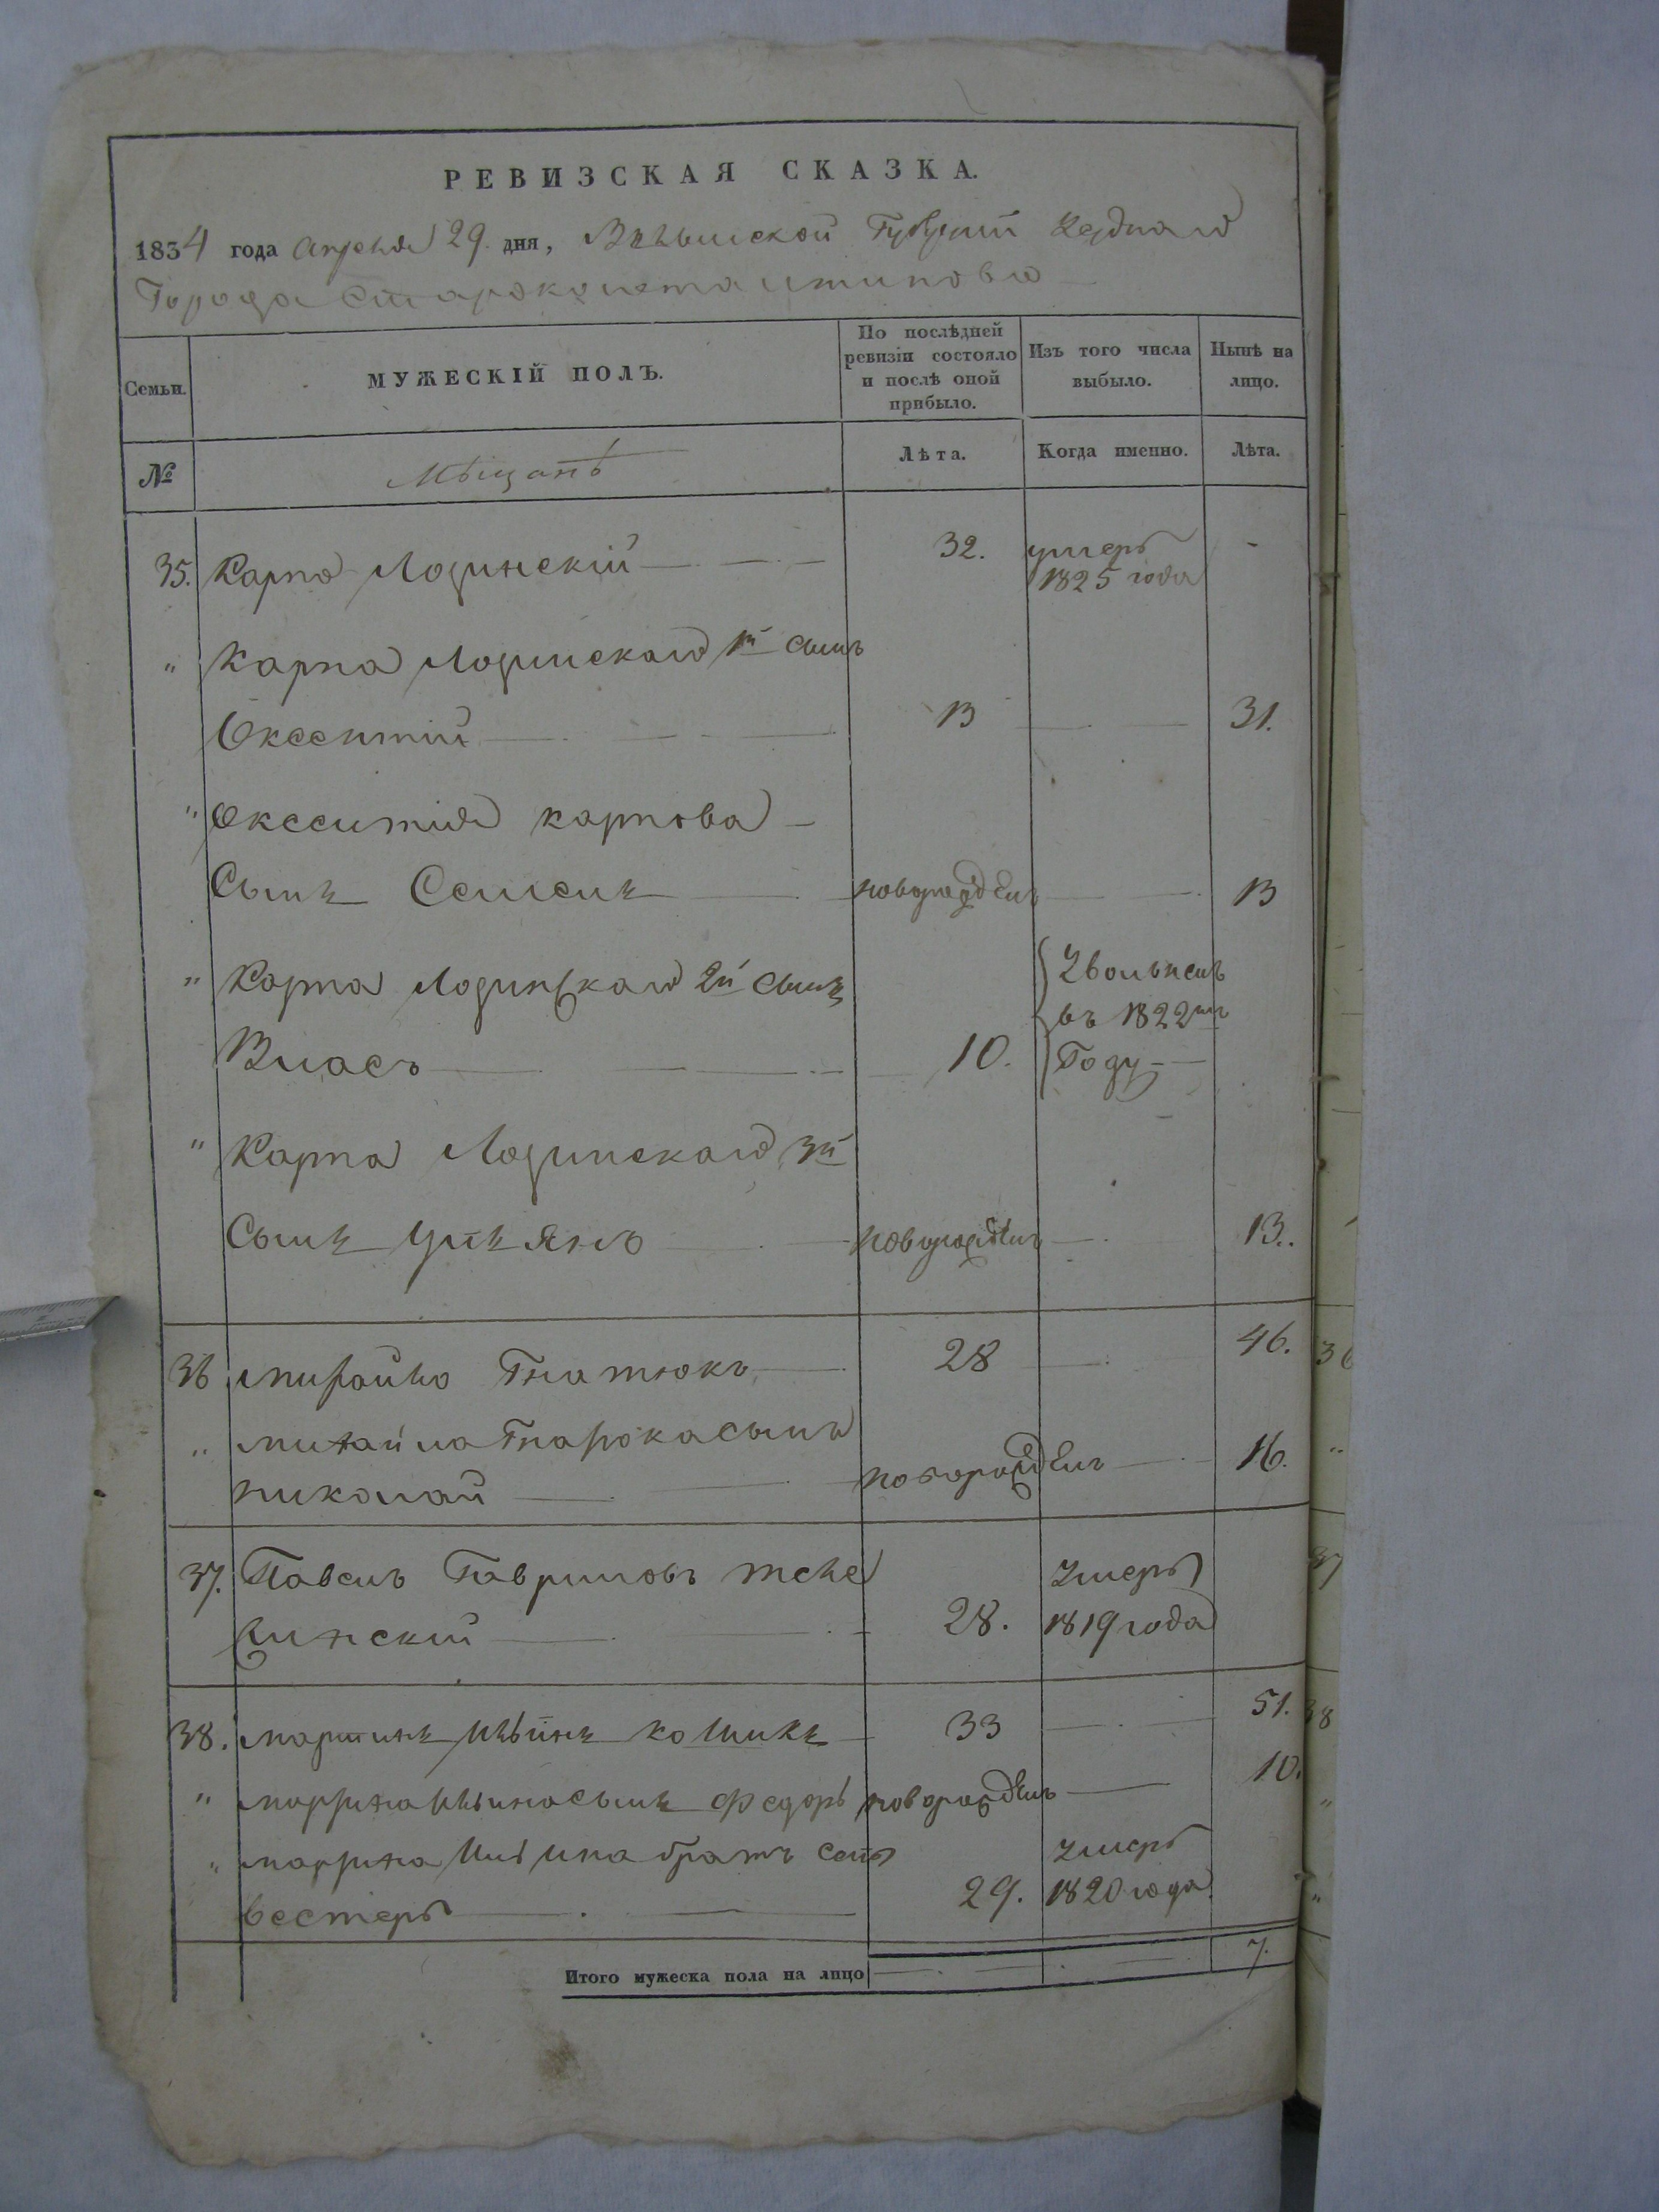 РЕВИЗСКАЯ СКАЗКА.
1834 года Апреля 29. дня, Волынской Губернии Уезднаго
Города Староконстантинова
Семьи.
МУЖЕСКІЙ ПОЛЪ.
По послѣдней ревизіи состояло и послѣ оной прибыло.
Изъ того числа выбыло.
Нынѣ на лицо.
№
Мѣщанѣ
Лѣта.
Когда именно.
Лѣта.
35. Карпо Лозинскій 32. умеръ -
1825 года
" Карпа Лозинскаго 1й сынъ
Оксентий 13 31.
" Оксентия карпова
Сынъ Семенъ новорожденъ 13
" Карпа Лозинскаго 2й сынъ
Власъ 10. въ 1822мъ
Году
" Карпа Лозинскаго 3й
Сынъ новорожденъ 13.
36 михайло Гнатюкъ 28 46.
" михайла Гнатюка сынъ
николай новорожденъ 16.
37. Павелъ Гавриловъ
28. Умеръ
1819 года
38. мартинъ 33 51.
" мартина сынъ Федоръ новорожденъ 10.
" мартина братъ Сель
вестеръ 29. Умеръ
1820 года
Итого мужеска пола на лицо 7.
36
"
37
38
"
"